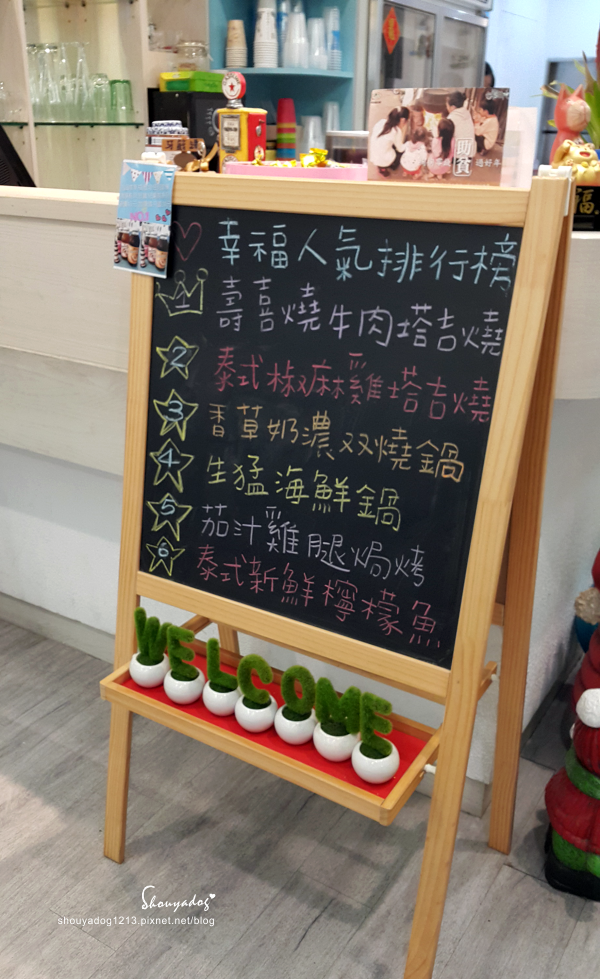 幸福人氣排行榜
1 壽喜燒牛肉塔吉燒
2 泰式椒麻雞塔吉燒
3 香草奶濃双燒鍋
4 生猛海鮮鍋
5 茄汁雞腿焗烤
6 泰式新鮮檸檬魚
WELCOME
福
Shouyadog
shouyadog1213.pixnet.net/blog